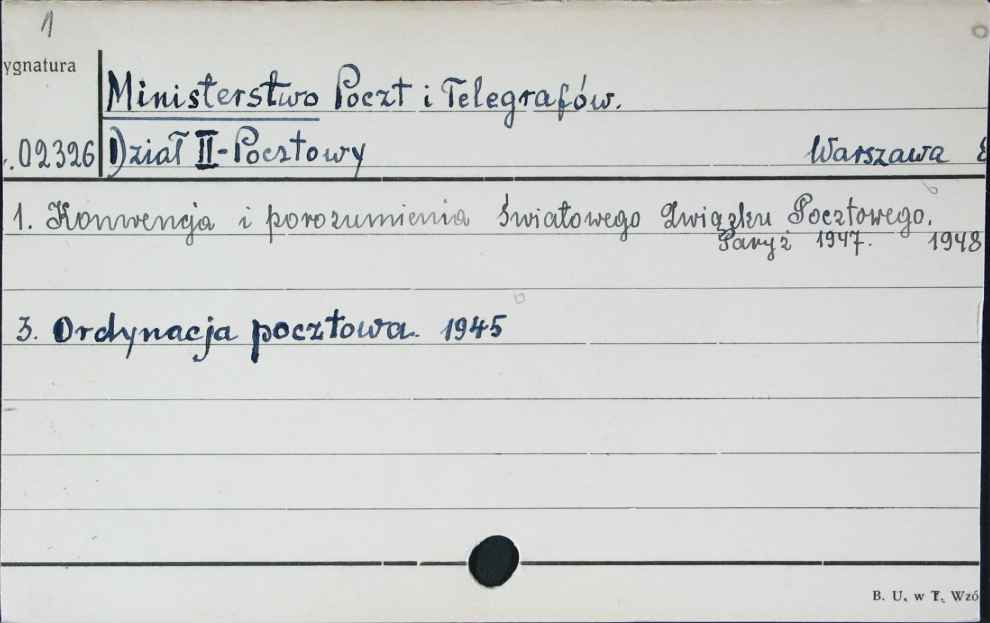 1
ygnatura
Ministerstwo Poczt i Telegrafów.
.02326 Dział II-Pocztowy Warszawa
1. Konwencja i porozumienia Światowego Związku Pocztowego.
Paryż 1947. 1948
3. Ordynacja pocztowa. 1945
B. U. w T. Wzó